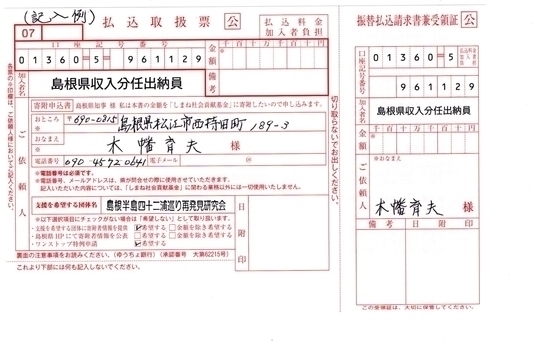 (記入例)
払込取扱票
公
払込料金
加入者負担
07
口座記号番号
千百十万千百十円
01360 5 961129
金額
加入者名
島根県収入分任出納員
備考
寄附申込書 島根県知事 様 私は本書の金額を「しまね社会貢献基金」に寄附したいので申し込みます。
おところ
〒690-0315 島根県松江市西持田町 189-3
おなまえ
木幡育夫 様
電話番号 090 4572 0641 電子メール @
※電話番号は必須です。
※電話番号、メールアドレスは、県が問合せの際に使用させていただきます。
記入いただいた内容については、「しまね社会貢献基金」に関わる業務以外には一切使用いたしません。
ご依頼人
支援を希望する団体名 島根半島四十二浦巡り再発見研究会
※以下選択項目にチェックがない場合は「希望しない」として取り扱います。
・支援を希望する団体に寄附者情報を提供 希望する 金額を除き希望する
・島根県HPにて寄附者情報を公表 希望する 金額を除き希望する
・ワンストップ特例申請 希望する
日附印
裏面の注意事項をお読みください。(ゆうちょ銀行)(承認番号 大第62215号)
これより下部には何も記入しないでください。
各票の※印欄は、ご依頼人様においてご記入ください。
切り取らないでお出しください。
振替払込請求書兼受領証
公
口座記号番号
01360 5
961129
加入者名
島根県収入分任出納員
金額
千百十万千百十円
ご依頼人
おなまえ
木幡育夫 様
備考
日附印
この受領証は、大切に保管してください。